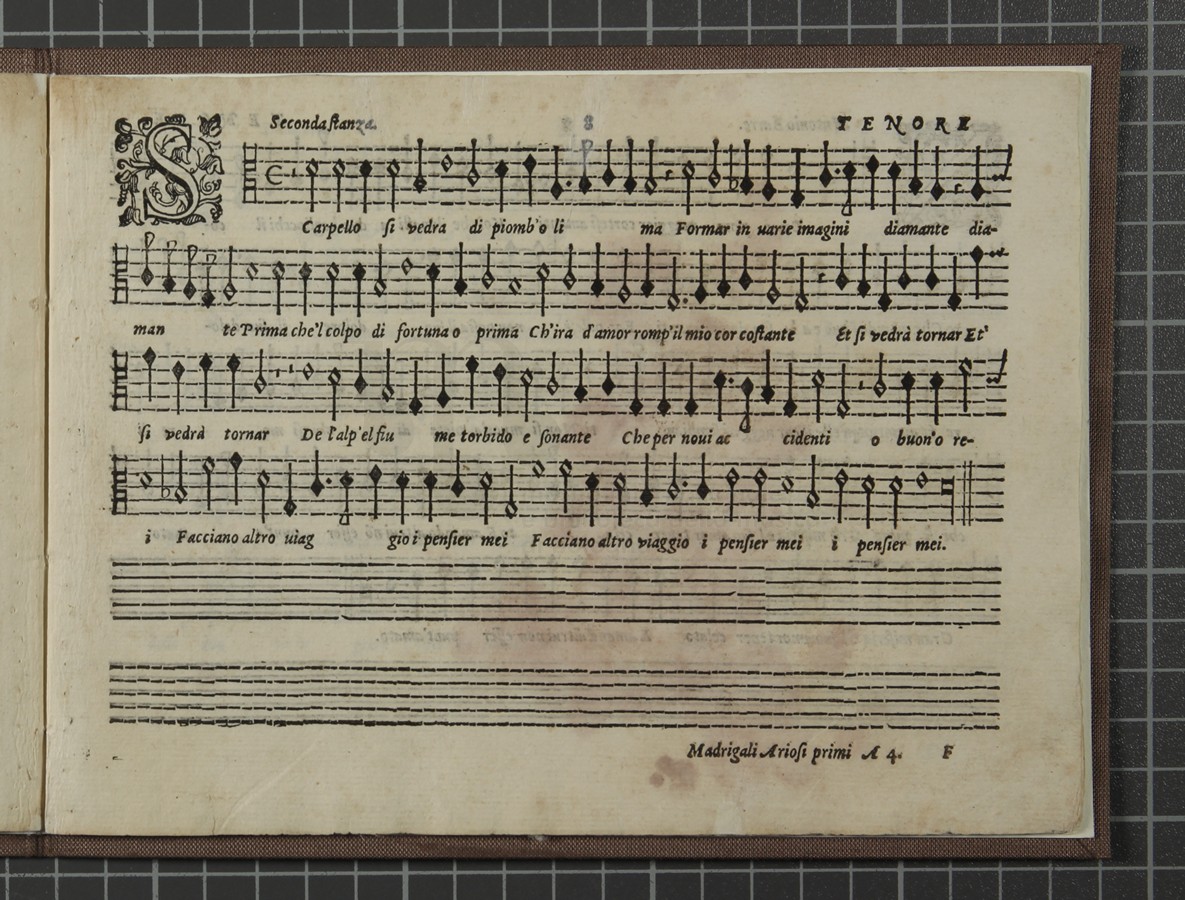 Seconda stanza. 8 TENORE
SCarpello si vedra di piomb'o li ma Formar in uarie imagini diamante dia-
man te Prima che'l colpo di fortuna o prima Ch'ira d'amor romp'il mio cor costante Et si vedrà tornar Et'
si vedrà tornar De l'alp'el fiu me torbido e sonante Che per noui ac cidenti o buon'o re-
i Facciano altro uiag gio i pensier mei Facciano altro viaggio i pensier mei i pensier mei.
Madrigali Ariosi primi A 4. F